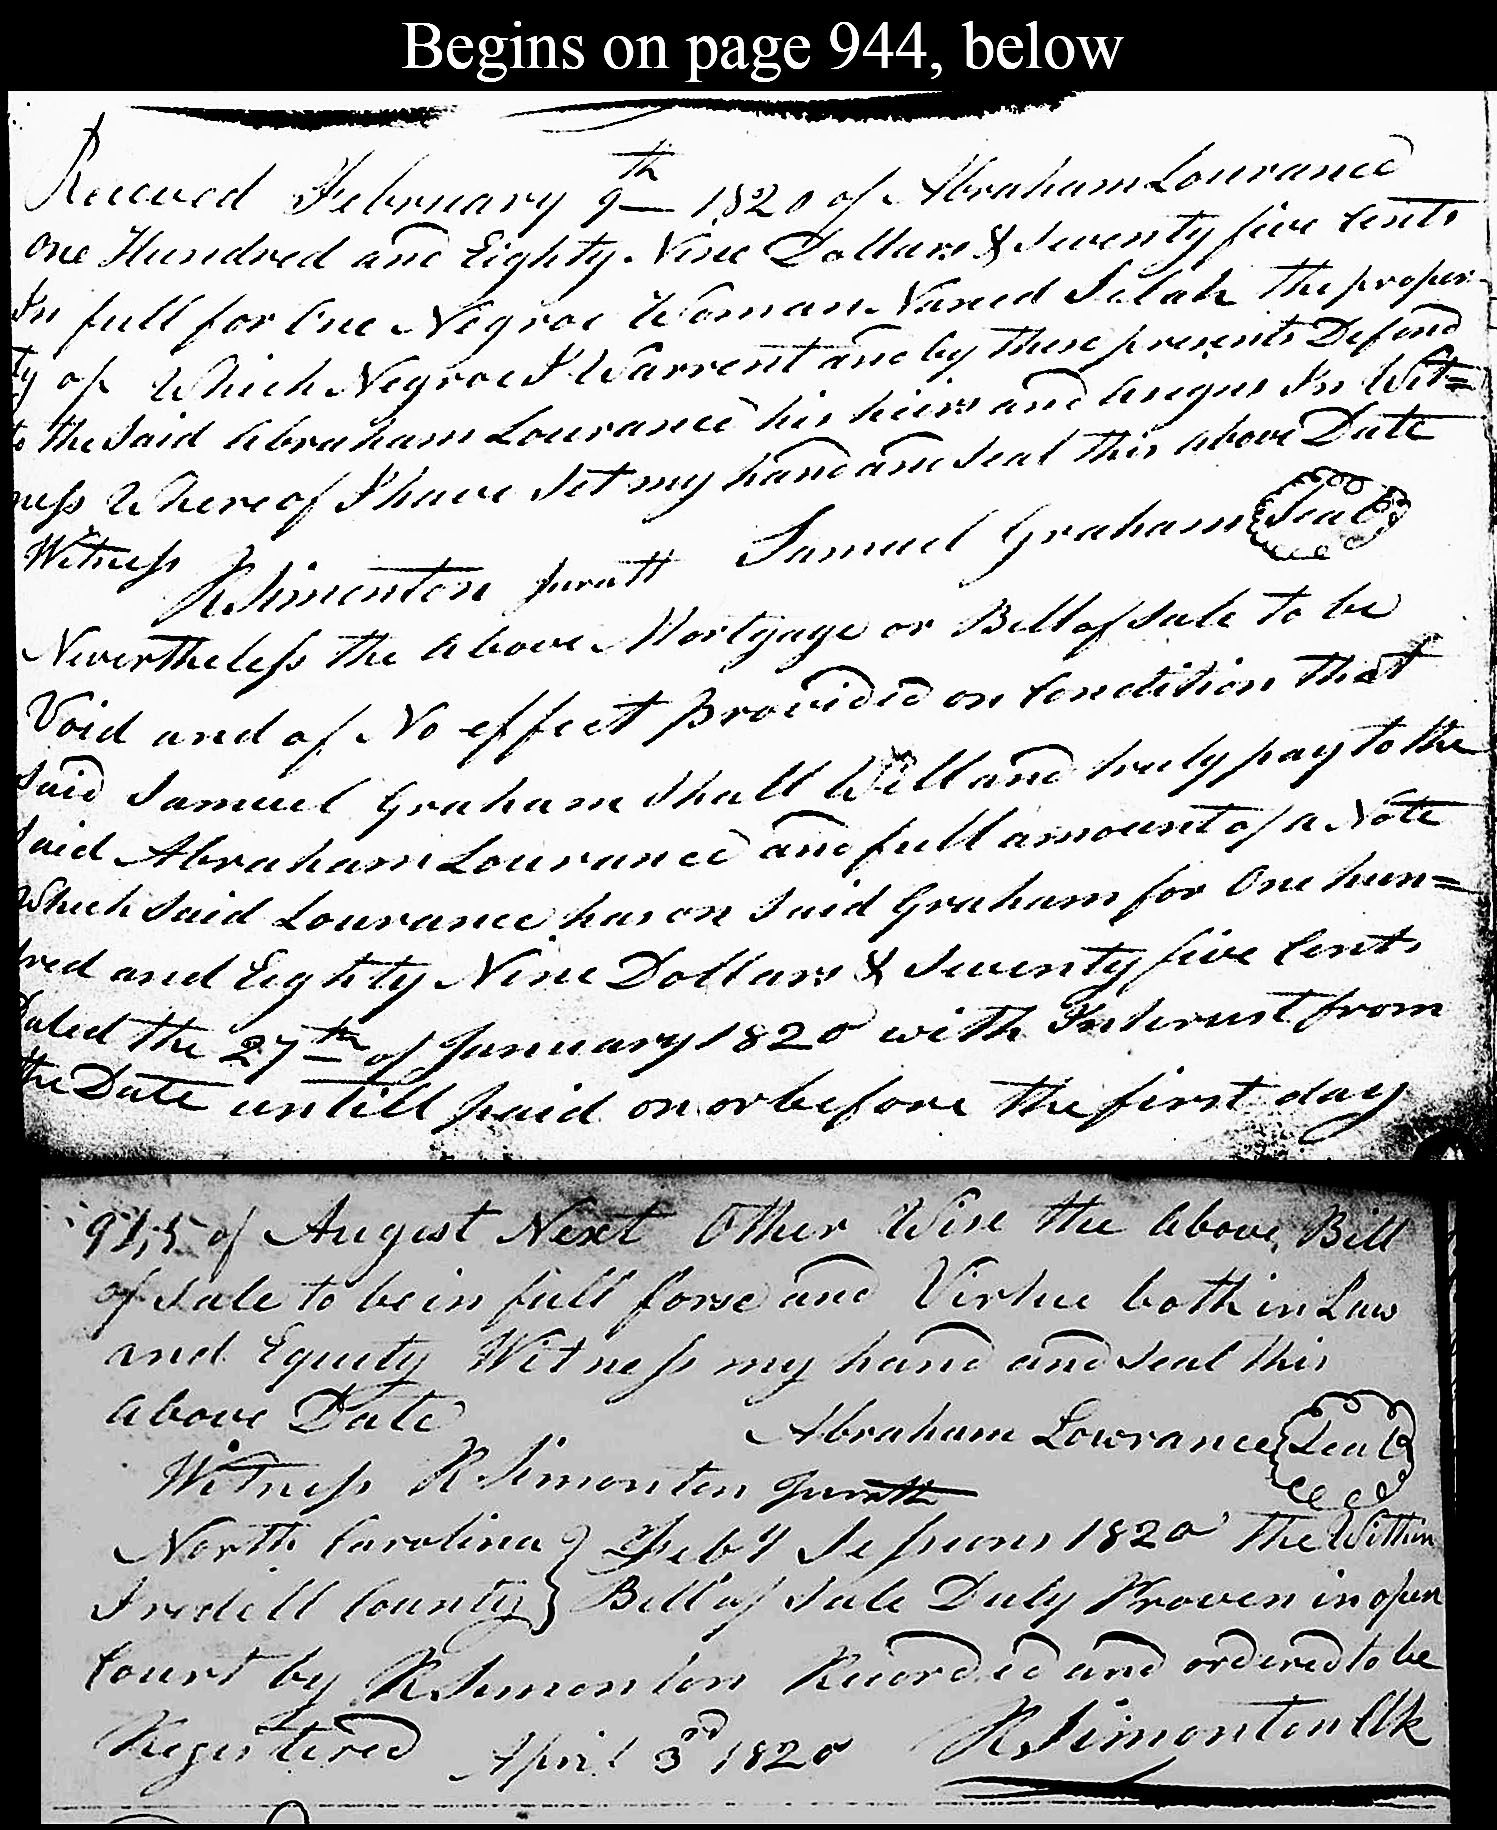 Begins on page 944, below
Received February 9th 1820 of Abraham Lourance
One Hundred and Eighty Nine Dollars & Seventy five Cents
In full for One Negroe Woman Named Selah the proper-
ty of Which Negroe I Warrent and by these presents Defend
to the Said Abraham Lourance his heirs and asigns In Wit=
ness Whereof I have Set my hand and Seal this above Date
Samuel Graham Seal
Witness
R Simonton Juratt
Nevertheless the above Mortgage or Bill of Sale to be
Void and of No effect Provided on Condition that
Said Samuel Graham Shall Will and truly pay to the
Said Abraham Lourance and full amount of a Note
Which Said Lourance has on Said Graham for One hun=
dred and Eighty Nine Dollars & Seventy five Cents
Dated the 27th of January 1820 with Interust from
the Date untill paid on or before the first day
945 of Augest Next Other Wise the above Bill
of Sale to be in full forse and Virtue both in Law
and Equity Witness my hand and Seal this
above Date Abraham Lowrance Seal
Witness R Simonton Juratt
North Carolina } Feby Sessions 1820 The Within
Iredell County } Bill of Sale Duly Proven in open
Court by R Simonton Recorded and ordered to be
Registered April 3rd 1820 R. Simonton Clk